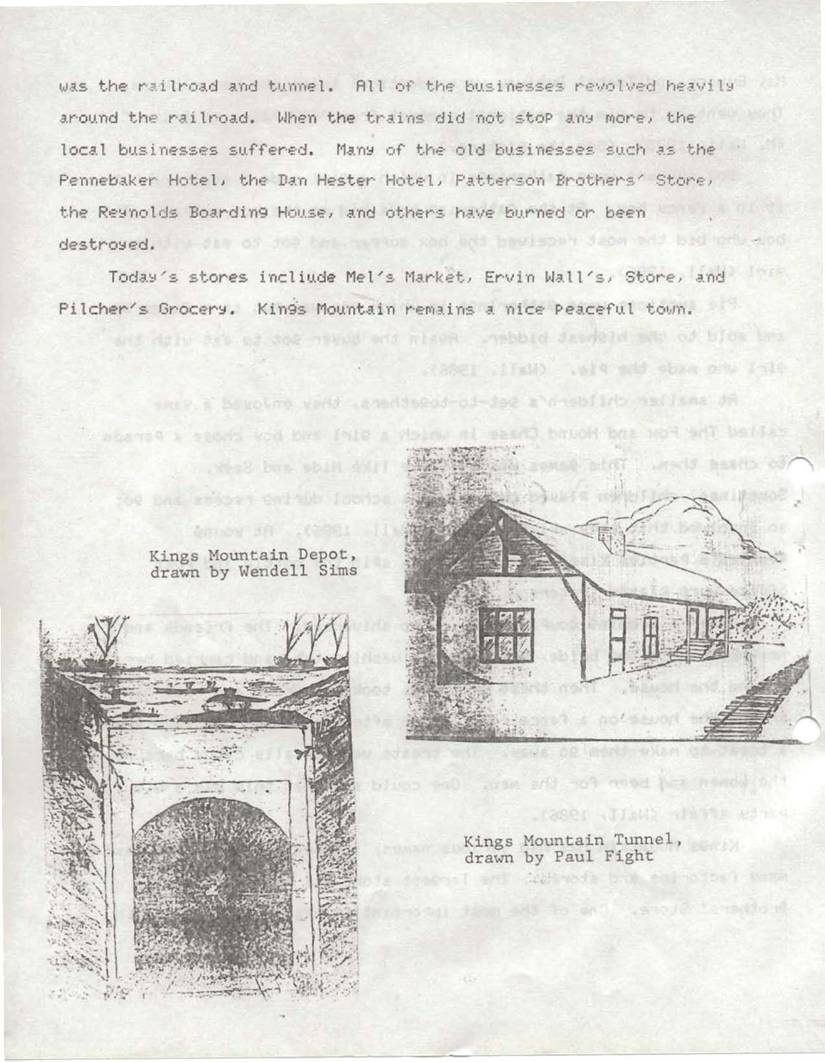 was the railroad and tunnel. All of the businesses revolved heavily
around the railroad. When the trains did not stop any more, the
local businesses suffered. Many of the old businesses such as the
Pennebaker Hotel, the Dan Hester Hotel, Patterson Brothers' Store,
the Reynolds Boarding House, and others have burned or been
destroyed.
Today's stores incliude Mel's Market, Ervin Wall's, Store, and
Pilcher's Grocery. Kings Mountain remains a nice peaceful town.
Kings Mountain Depot,
drawn by Wendell Sims
Kings Mountain Tunnel,
drawn by Paul Fight